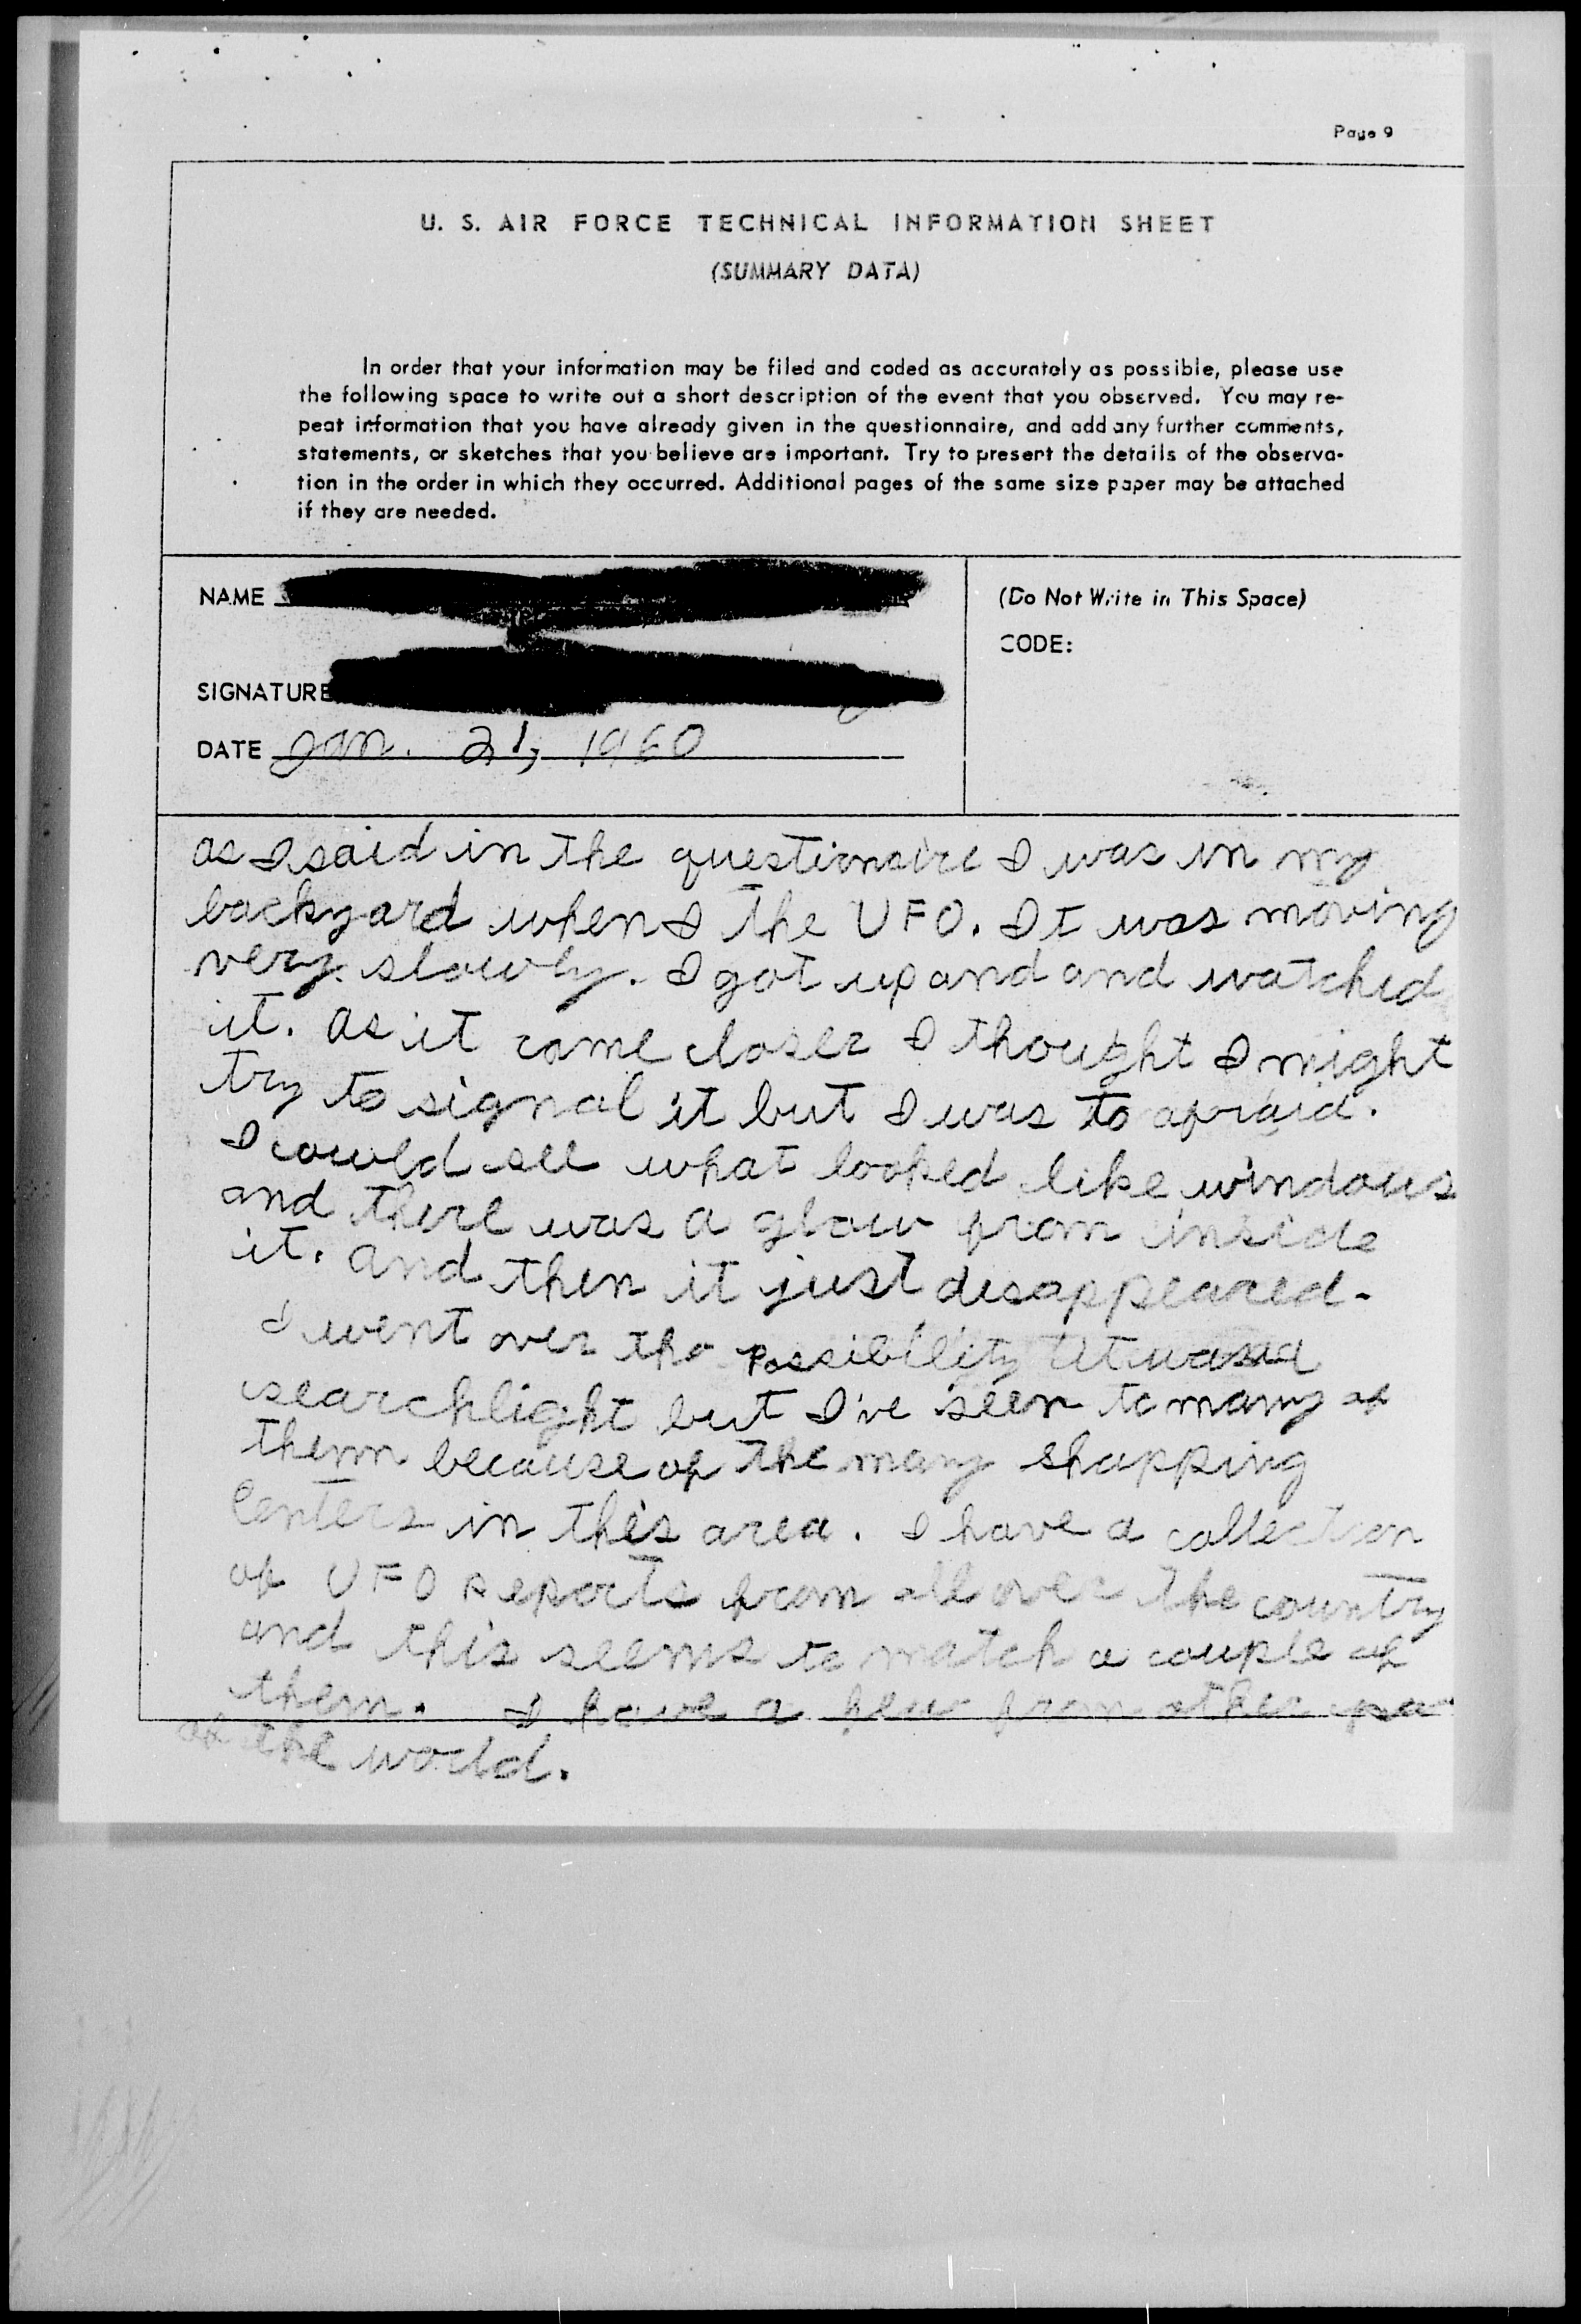 Page 9
U. S. AIR FORCE TECHNICAL INFORMATION SHEET
(SUMMARY DATA)
In order that your information may be filed and coded as accurately as possible, please use
the following space to write out a short description of the event that you observed. You may re-
peat information that you have already given in the questionnaire, and add any further comments,
statements, or sketches that you believe are important. Try to present the details of the observa-
tion in the order in which they occurred. Additional pages of the same size paper may be attached
if they are needed.
NAME
(Do Not Write in This Space)
CODE:
SIGNATURE
DATE Jan. 21, 1960
as I said in the questionaire I was in my
backyard when I the UFO. It was moving
very slowly. I got up and and watched
it. as it came closer I thought I might
try to signal it but I was to afraid.
I could see what looked like windows
and there was a glow from inside
it. and then it just disappeared.
I went over the possibility it was a
searchlight but I've seen to many of
them because of the many shopping
Centers in this area. I have a collection
of UFO reports from all over the country
and this seems to match a couple of
them. I have a few from other
of the world.